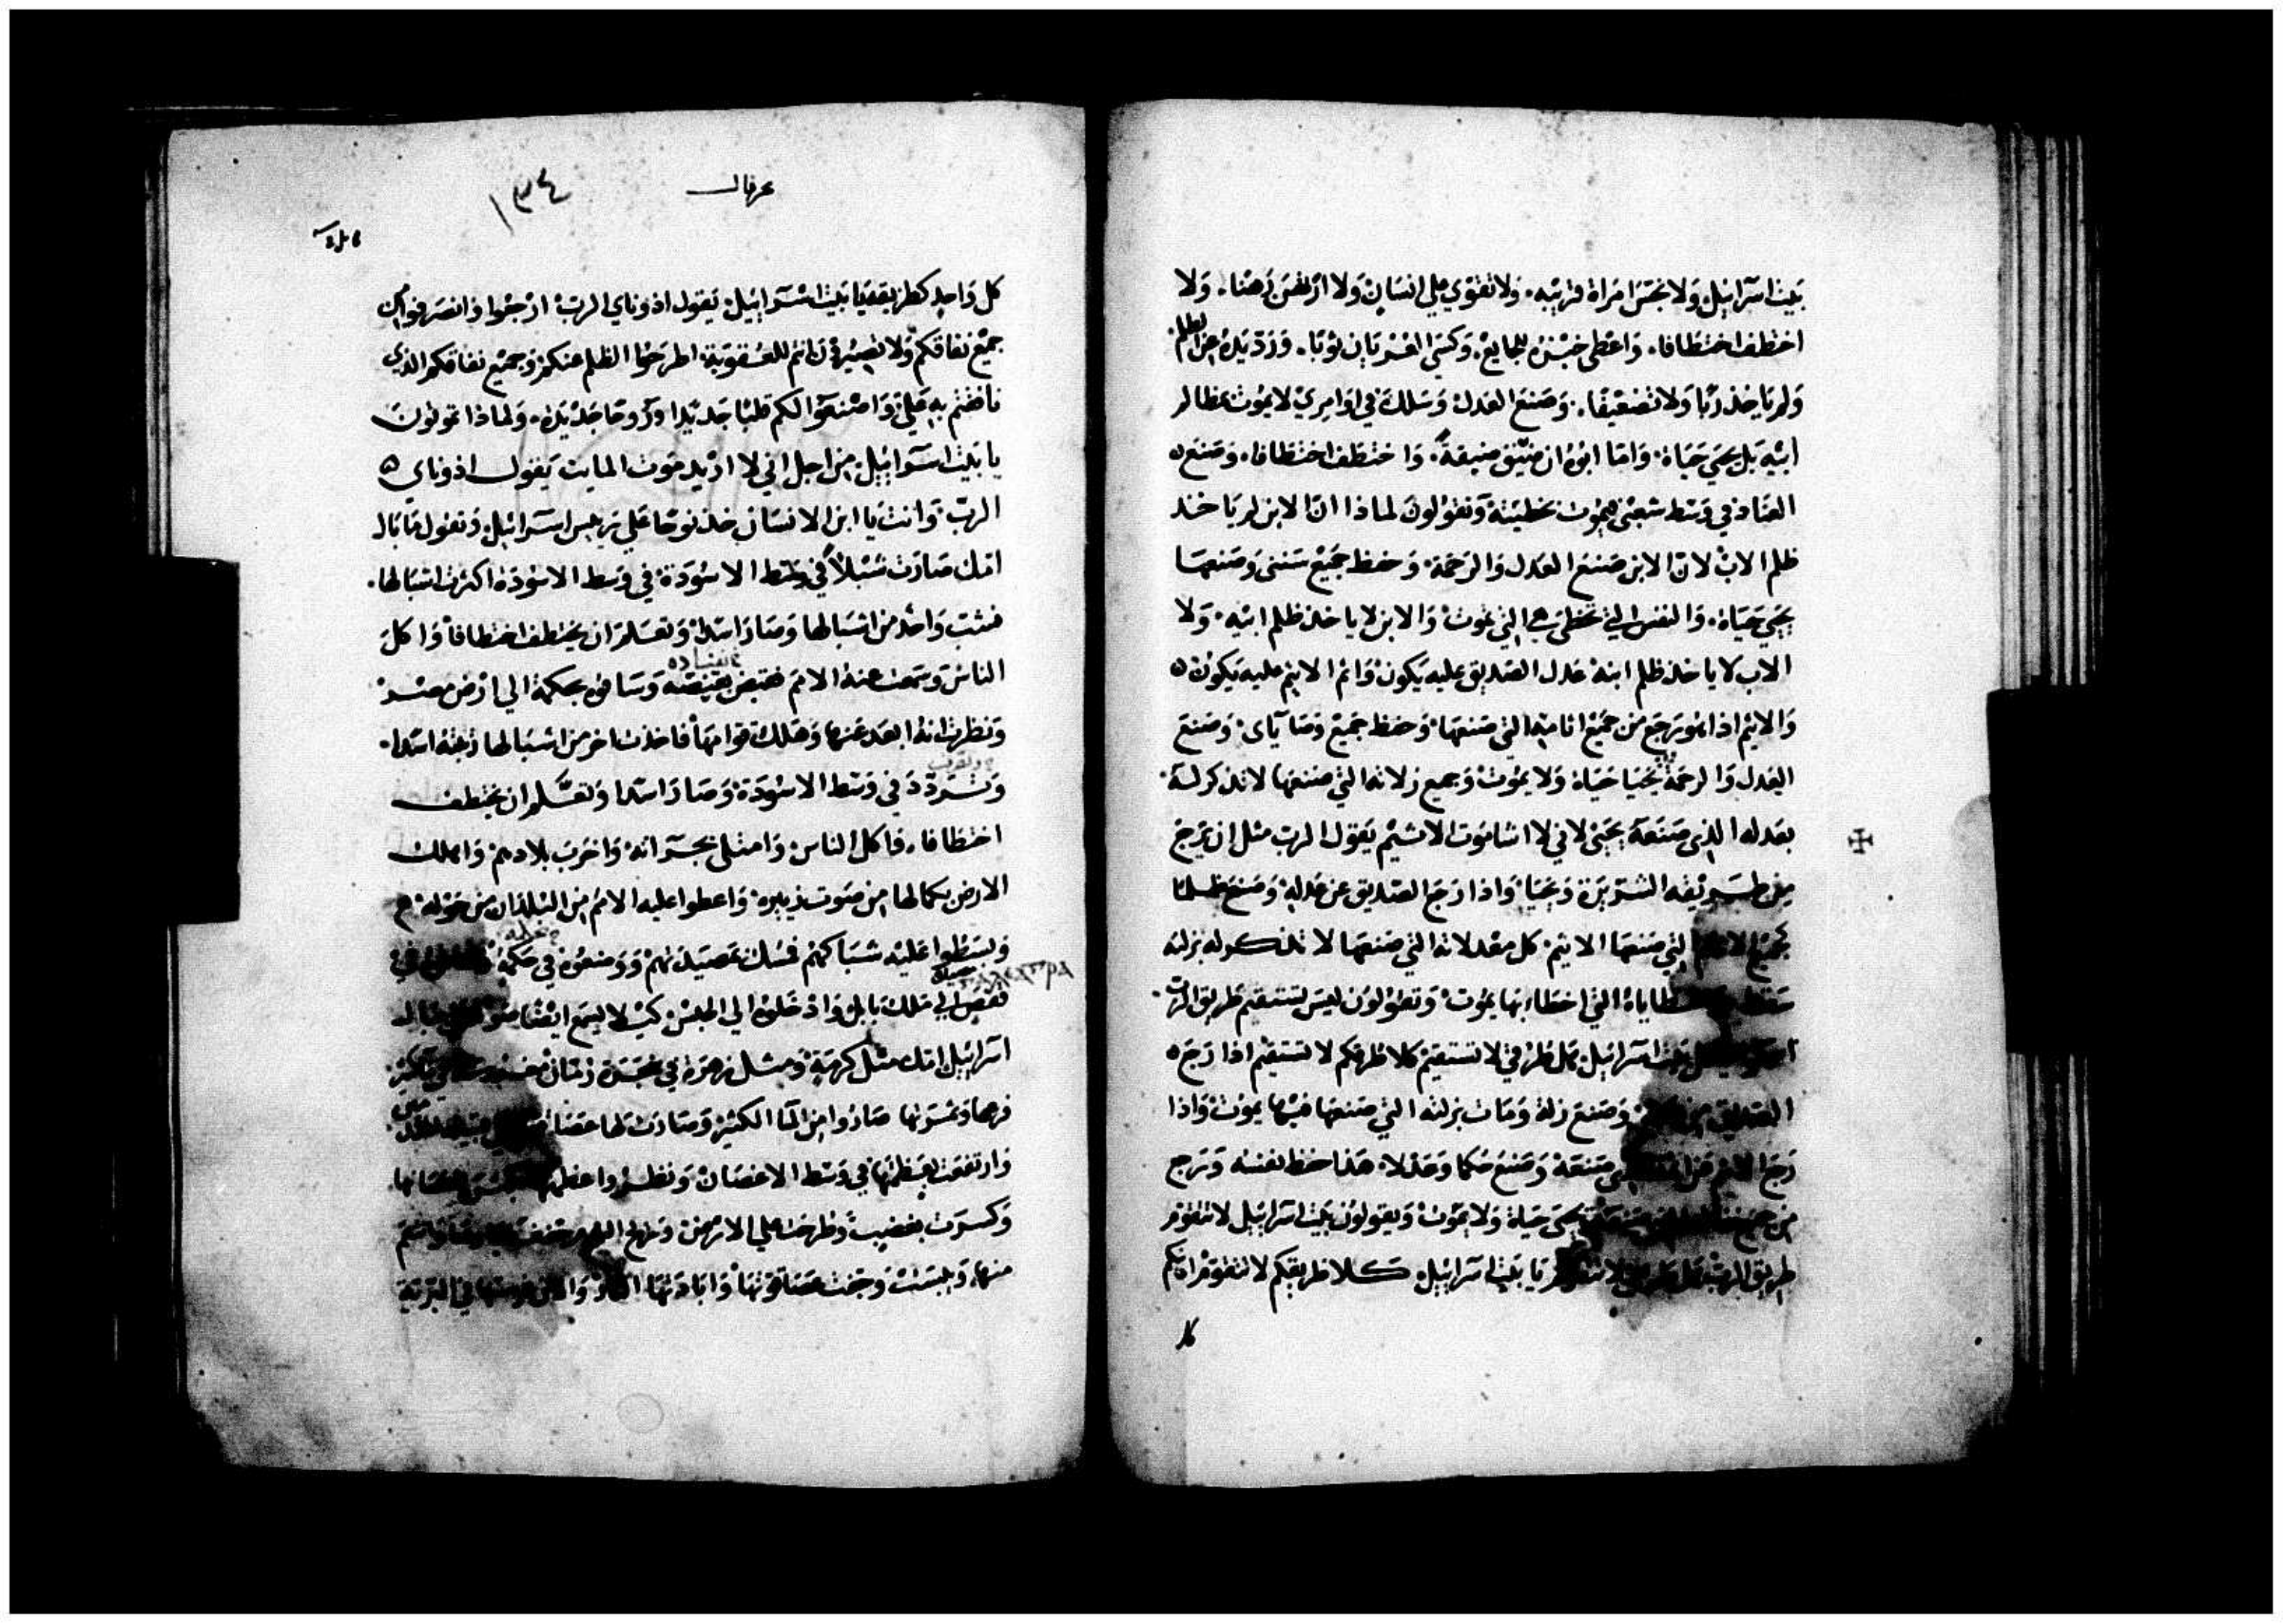 بيت اسرائيل ولا نجس امراة قريبه ولا تقوي علي انسان ولا ارتهن رهنا ولا
اختطف اختطافا واعطي خبزه للجايع وكسي العريان ثوبا ورد يده عن الظلم
ولم ياخذ ربا ولا تضعيفا وصنع العدل وسلك في اوامري لا يموت بمظالم
ابيه بل يحيي حياة واما ابوه ان ضيق ضيقة واختطف اختطافا وصنع
العناد في وسط شعبي فيموت بخطيته وتقولون لماذا ان الابن لم ياخذ
ظلم الاب لان الابن صنع العدل والرحمة وحفظ جميع سنني وصنعها
يحيي حياة والنفس التي تخطي هي التي تموت والابن لا ياخذ ظلم ابيه ولا
الاب لا ياخذ ظلم ابنه عدل الصديق عليه يكون واثم الاثيم عليه يكون
والاثيم اذا هو رجع من جميع اثامه التي صنعها وحفظ جميع وصاياي وصنع
العدل والرحمة يحيا حياة ولا يموت وجميع زلاته التي صنعها لا تذكر له
بعدله الذي صنعه يحيي لاني لا اشا موت الاثيم يقول الرب مثل ان يرجع
من طريقه الشريرة ويحيا واذا رجع الصديق عن عدله وصنع ظلما
كجميع التي صنعها الاثيم كل معدلاته التي صنعها لا تذكر له بزلته
خطاياه التي اخطا بها يموت وتقولون ليس تستقيم طريق الرب
بيت اسرائيل هل طرقي لا تستقيم كلا طرقكم لا تستقيم اذا رجع
الصديق وصنع زلة ومات بزلته التي صنعها فيها يموت واذا
رجع صنعه وصنع حكما وعدلا هذا حفظ نفسه ورجع
من جميع يحيي حياة ولا يموت ويقولون بيت اسرائيل لا تتقوم
طريق الرب يا بيت اسرائيل كلا طريقكم لا تتقوم احاكم
كلا
حزقيال
١٣٤
كل واحد كطريقه يا بيت اسرائيل يقول ادوناي الرب ارجعوا وانصرفوا من
جميع نفاقكم ولا تصيروا للعقوبة اطرحوا الظلم عنكم وجميع نفاقكم الذي
نافقتم به علي واصنعوا لكم قلبا جديدا وروحا جديدة ولماذا تموتون
يا بيت اسرائيل من اجل اني لا اريد موت المايت يقول ادوناي
الرب وانت يا ابن الانسان خذ نوحا علي رييس اسرائيل وتقول ما بال
امك صارت شبلا في وسط الاسودة في وسط الاسودة اكثرت اشبالها
فشب واحد من اشبالها وصار اسدا وتعلم ان يختطف اختطافا واكل
الناس وسمعت عنه الامم فقبض بقبضته وساقوه بحكمة الي ارض مصر
ونظرت انه ابعد عنها وهلك قوامها فاخذت اخر من اشبالها رعته اسدا
وتردد في وسط الاسودة وصار اسدا وتعلم ان يختطف
اختطافا فاكل الناس وامتلي بجسراته واخرب بلادهم واهلك
الارض بكمالها من صوت زييره واعطوا عليه الامم من البلدان من حوله
وبسطوا عليه شباكهم فمسك بمصيدتهم ووضعوه في حكمة
ملك بابل وادخلوه الي الحبس كي لا يسمع ايضا
اسرائيل امك مثل كرمة ومثل زهرة في شجرة رمان
فرعها وثمرتها صاروا من الما الكثير وصارت لها عصا
وارتفعت بعظمتها في وسط الاغصان ونظروا
وكسرت بغضب وطرحت علي الارض
منها ويبست وجفت عصا قوتها وابادتها النار والان غرستها في البرية